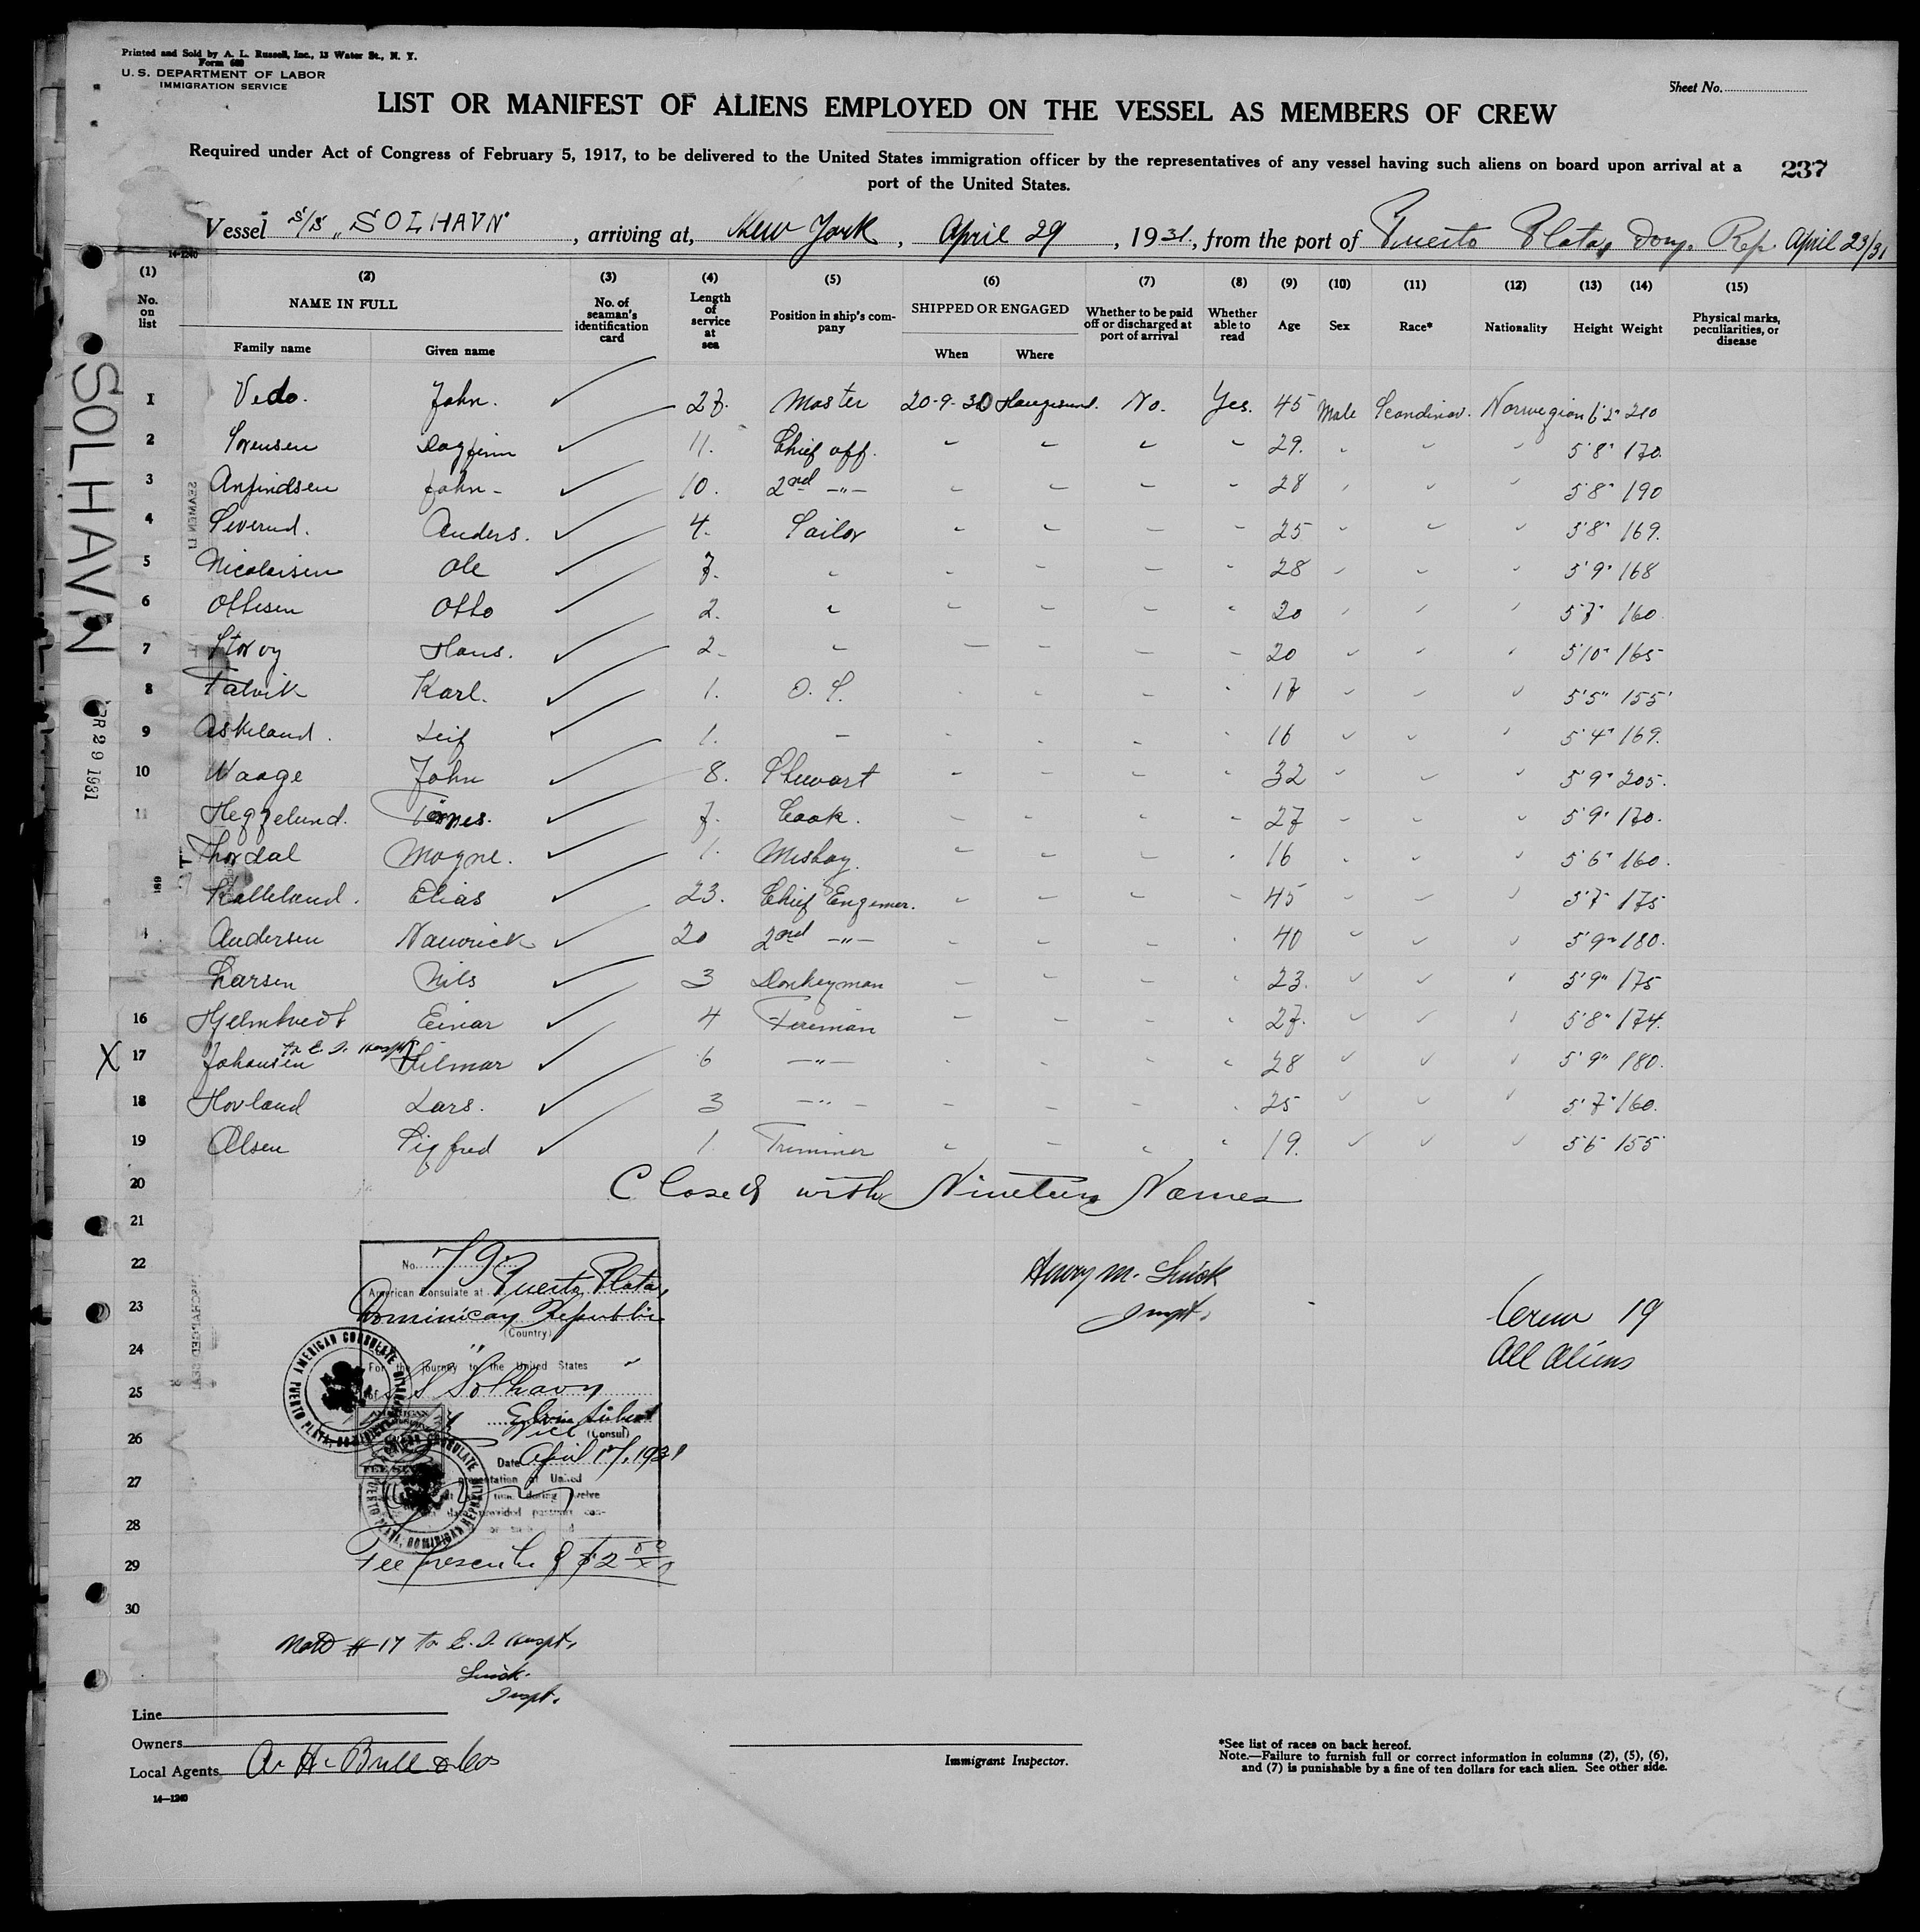 Printed and Sold by A. L. Russell, Inc., 13 Water St., N. Y.
Form 689
U. S. DEPARTMENT OF LABOR
IMMIGRATION SERVICE
Sheet No.
LIST OR MANIFEST OF ALIENS EMPLOYED ON THE VESSEL AS MEMBERS OF CREW
Required under Act of Congress of February 5, 1917, to be delivered to the United States immigration officer by the representatives of any vessel having such aliens on board upon arrival at a
port of the United States.
237
Vessel S/S "SOLHAVN", arriving at, New York, April 29, 1931, from the port of Puerto Plata, Dom. Rep. April 23/31
14-1240
(1) (2) (3) (4) (5) (6) (7) (8) (9) (10) (11) (12) (13) (14) (15)
No. on list NAME IN FULL Family name Given name No. of seaman's identification card Length of service at sea Position in ship's company SHIPPED OR ENGAGED When Where Whether to be paid off or discharged at port of arrival Whether able to read Age Sex Race* Nationality Height Weight Physical marks, peculiarities, or disease
1 Vedo. John. ✓ 27. Master 20-9-30 Haugesund. No. Yes. 45 Male Scandinav. Norwegian 6'2" 210
2 Sorensen Dagfinn ✓ 11. Chief off. 29. 5'8" 170.
3 Anfindsen John ✓ 10. 2nd -"- 28 5'8" 190
4 Severud. Anders. ✓ 4. Sailor 25 5'8" 169.
5 Nicolaisen Ole ✓ 7. 28 5'9" 168
6 Ottesen Otto ✓ 2. 20 5'7" 160
7 Storoy Hans. ✓ 2. 20 5'10" 165
8 Karl. ✓ 1. O. S. 17 5'5" 155
9 Askeland. Leif ✓ 1. 16 5'4" 169.
10 Waage John ✓ 8. Stewart 32 5'9" 205.
11 Heggelund. ✓ 7. Cook. 27 5'9" 170.
Thordal Mogne. ✓ 1. Messboy. 16 5'6" 160.
Kalleland. Elias ✓ 23. Chief Engineer. 45 5'7" 175
Andersen ✓ 20 2nd -"- 40 5'9" 180.
Larsen Nils ✓ 3 Donkeyman 23. 5'9" 175
16 Hjelmtvedt Einar ✓ 4 Fireman 27. 5'8" 174.
To E. I. Hospt.
X 17 Johansen Hilmar ✓ 6 -"- 28 5'9" 180.
18 Hovland Lars. ✓ 3 -"- 25 5'7" 160.
19 Olsen Sigfred ✓ 1. Trimmer 19. 5'6 155
20 Closed with Nineteen Names
21
22
23
24
25
26
27
28
29
30
SOLHAVN
APR 29 1931
No. 79
American Consulate at Puerto Plata,
Dominican Republic
(Country)
For the journey to the United States
of S S Solhavn
Vice (Consul)
Date April 17, 1931
presentation at United
time during twelve
date provided passport con-
AMERICAN CONSULATE
PUERTO PLATA, DOMINICAN REPUBLIC
AMERICAN CONSULATE
PUERTO PLATA, DOMINICAN REPUBLIC
Fee prescribed $2.00
Henry M. Linick
Inspt.
Crew 19
All Aliens
Note #17 to E. I. Hospt.
Linick.
Inspt.
Line
Owners
Local Agents A. H. Bull & Co
14—1240
Immigrant Inspector.
*See list of races on back hereof.
Note.—Failure to furnish full or correct information in columns (2), (5), (6),
and (7) is punishable by a fine of ten dollars for each alien. See other side.